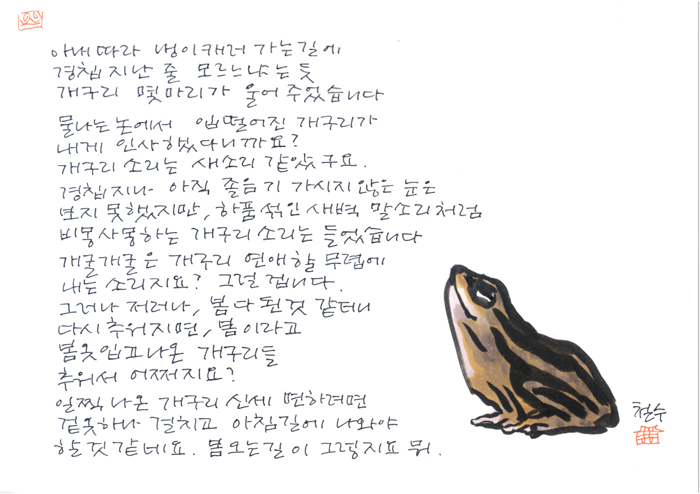 아내따라 냉이캐러 가는길에
경칩지난 줄 모르느냐는 듯
개구리 몇마리가 울어 주었습니다
물나는 논에서 입떨어진 개구리가
내게 인사했다니까요?
개구리 소리는 새소리 같았구요.
경칩지나 아직 졸음기 가시지 않은 눈은
보지 못했지만, 하품섞인 새벽 말소리처럼
비몽사몽하는 개구리 소리는 들었습니다
개굴개굴은 개구리 연애할 무렵에
내는 소리지요? 그럴 겁니다.
그러나 저러나, 봄 다 된것 같더니
다시 추워지면, 봄이라고
봄옷입고나온 개구리들
추워서 어쩌지요?
일찍 나온 개구리 신세 면하려면
겉옷하나 걸치고 아침길에 나와야
할 것 같네요. 봄오는길이 그렇지요 뭐.
철수